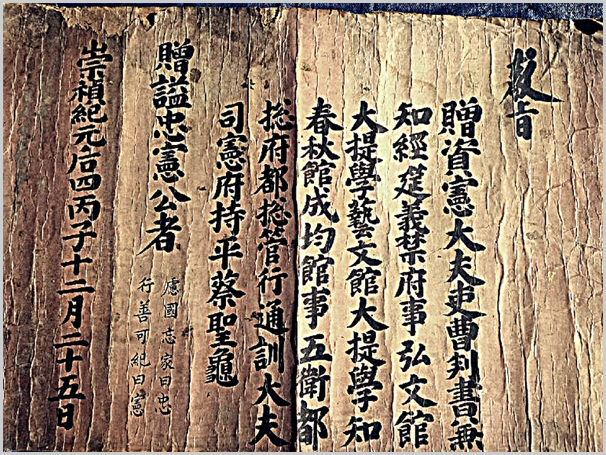 敎旨
贈資憲大夫吏曹判書兼
知經筵義禁府事弘文館
大提學藝文館大提學知
春秋館成均館事五衛都
捴府都捴管行通訓大夫
司憲府持平蔡聖龜
贈諡忠憲公者
慮國忘家曰忠
行善可紀曰憲
崇禎紀元后四丙子十二月二十五日